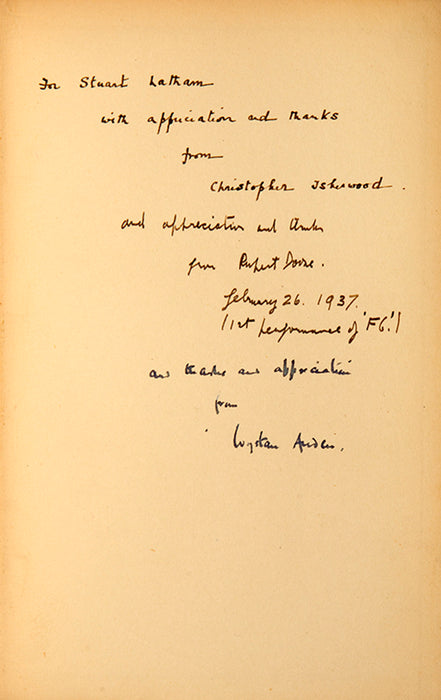 For Stuart Latham
with appreciation and thanks
from
Christopher Isherwood.
and appreciation and thanks
from Rupert Doone.
February 26. 1937.
(1st performance of 'F6'.)
and thanks and appreciation
from
Wystan Auden.